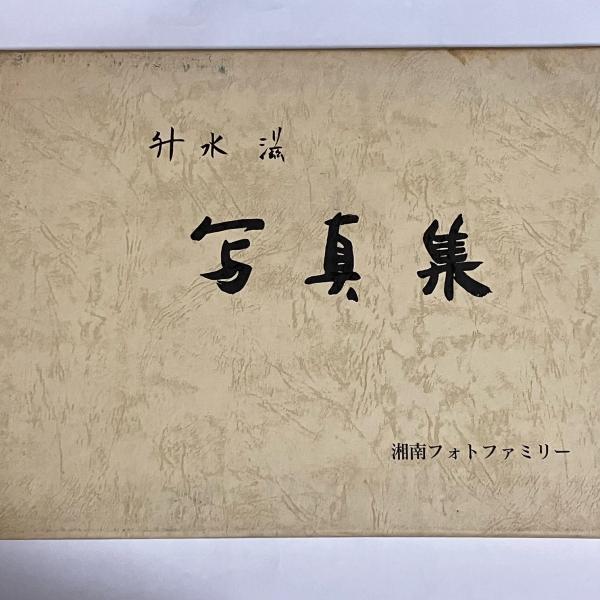 升水 滋
写真集
湘南フォトファミリー